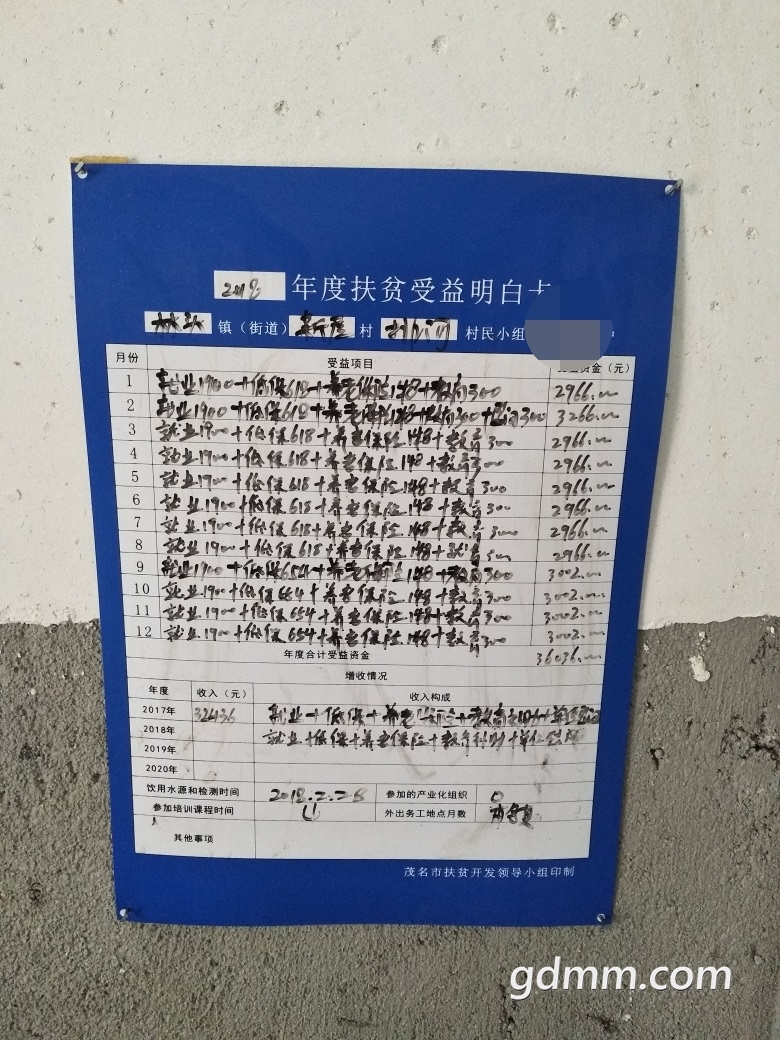 2018 年度扶贫受益明白卡
林头 镇（街道） 新屋 村 河 村民小组
月份 受益项目 资金（元）
1 就业1900+低保618+养老保险148+教育300 2966.00
2 就业1900+低保618+养老保险148+教育300+慰问300 3266.00
3 就业1900+低保618+养老保险148+教育300 2966.00
4 就业1900+低保618+养老保险148+教育300 2966.00
5 就业1900+低保618+养老保险148+教育300 2966.00
6 就业1900+低保618+养老保险148+教育300 2966.00
7 就业1900+低保618+养老保险148+教育300 2966.00
8 就业1900+低保618+养老保险148+教育300 2966.00
9 就业1900+低保654+养老保险148+教育300 3002.00
10 就业1900+低保654+养老保险148+教育300 3002.00
11 就业1900+低保654+养老保险148+教育300 3002.00
12 就业1900+低保654+养老保险148+教育300 3002.00
年度合计受益资金 36036.00
增收情况
年度 收入（元） 收入构成
2017年 32436 就业+低保+养老保险+教育补助+单位慰问
2018年 就业+低保+养老保险+教育补助+单位慰问
2019年
2020年
饮用水源和检测时间 2018.2.28 参加的产业化组织 0
参加培训课程时间 外出务工地点月数
其他事项
茂名市扶贫开发领导小组印制
gdmm.com